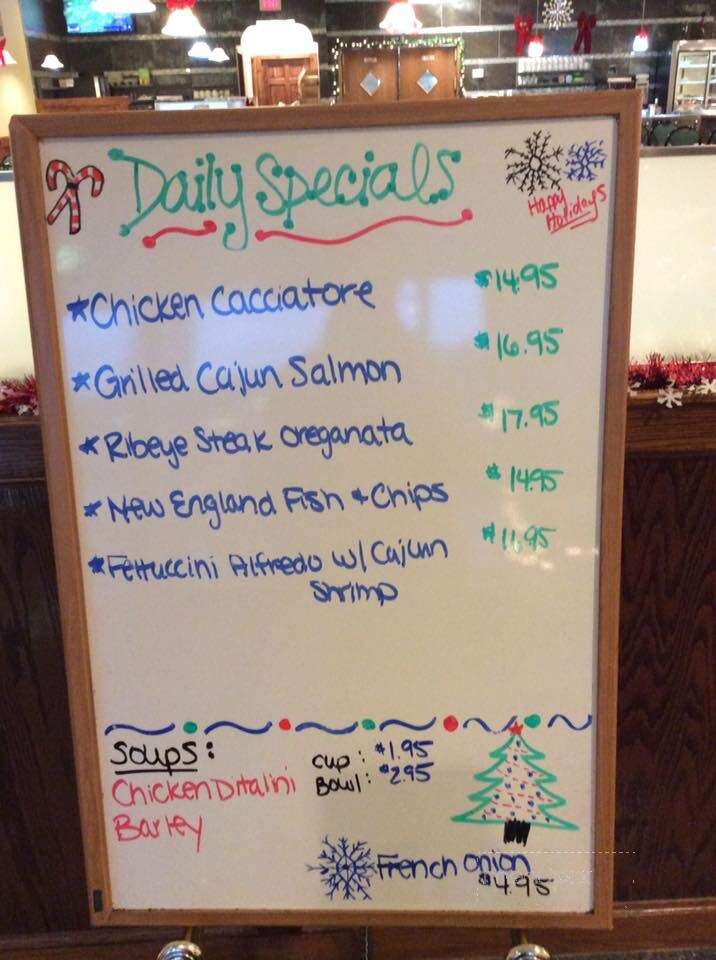 Daily Specials
Happy
Holidays
*Chicken Cacciatore $14.95
*Grilled Cajun Salmon $16.95
*Ribeye Steak Oreganata $17.95
*New England Fish + Chips $14.95
*Fettuccini Alfredo w/ Cajun $11.95
Shrimp
Soups:
cup: $1.95
Bowl: $2.95
Chicken Ditalini
Barley
French Onion
$4.95